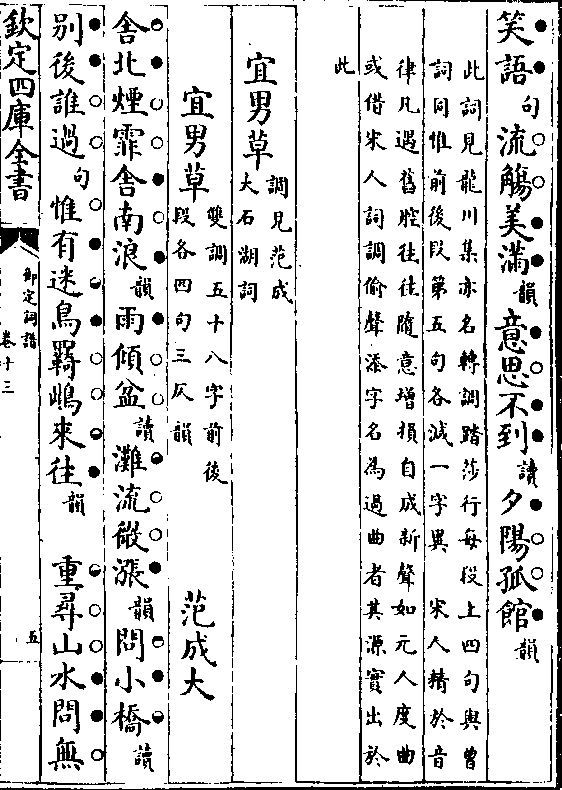 笑語句流觴美滿韻意思不到讀夕陽孤館韻
此詞見龍川集亦名轉調踏莎行每段上四句與曾
詞同惟前後段第五句各減一字異　宋人精於音
律凡遇舊腔往往隨意增損自成新聲如元人度曲
或借宋人詞調偷聲添字名為過曲者其源實出於
此
宜男草
調見范成
大石湖詞
宜男草
雙調五十八字前後
段各四句三仄韻
范成大
舎北煙霏舎南浪韻雨傾盆讀灘流微漲韻問小橋讀
別後誰過句惟有迷鳥羇鴟來往韻　重尋山水問無
欽定四庫全書
御定詞譜
卷十三
五